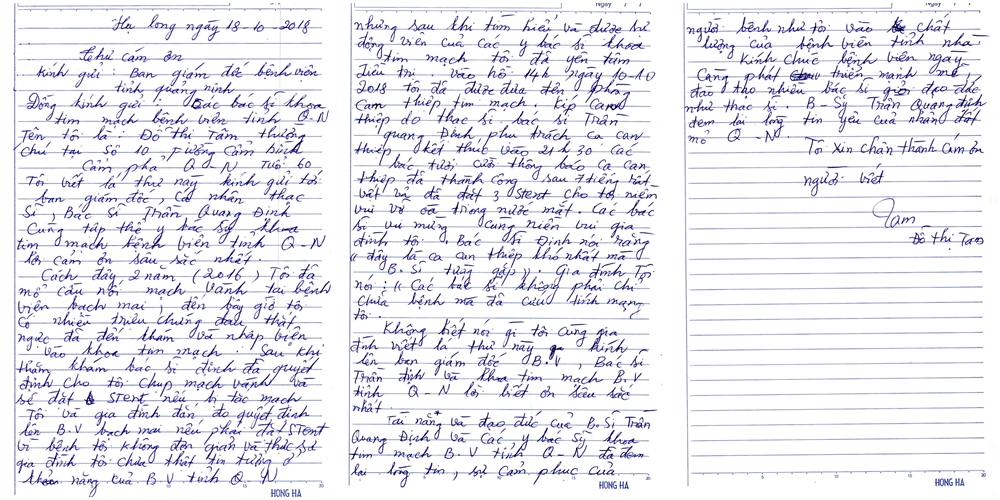 Hạ long ngày 18-10-2018
Thư cảm ơn
Kính gửi Ban giám đốc bệnh viên
tỉnh quảng ninh
Đồng kính gửi : các bác sĩ khoa
tim mạch bệnh viên tỉnh Q-N
Tên tôi là : Đỗ Thị Tâm thường
chú tại Số 10 Fường Cẩm Bình
Cẩm phả Q-N Tuổi 60
Tôi viết lá thư này kính gửi tới
ban giám đốc, Cá nhân thạc
Sĩ, Bác Sĩ Trần Quang Định
Cùng tập thể y bác sỹ khoa
tim mạch bệnh viên tỉnh Q-N
lời cảm ơn sâu sắc nhất.
Cách đây 2 năm (2016) Tôi đã
mổ cầu nối mạch vành tại bệnh
viên bach mai, đến bây giờ tôi
Có nhiều triệu chứng đau thắt
ngực đã đến khám và nhâp viện
vào khoa tim mạch. Sau khi
thăm khám bác sĩ định đã quyết
định cho tôi chup mạch vành và
sẽ đăt Stent nếu bi tắc mạch
Tôi và gia đình đắn đo quyết định
lên B.V bạch mai nếu phải đăt Stent
vì bệnh tôi không đơn giản và thức sự
gia đình tôi chưa thất tin tưởng ở
khả năng của B.V tỉnh Q-N
nhưng sau khi tìm hiểu và được sự
động viên của các y bác sĩ khoa
tim mạch tôi đã yên tâm
điều tri. vào hồ 14h ngày 10-10
2018 tôi đã được đưa đến phòng
Can thiêp tim mạch. Kíp Can
thiêp do thac sĩ bác sĩ Trần
quang Định phu trách ca can
thiêp kết thúc vào 21h30 Các
bác tươi cười thông báo ca can
thiêp đã thành công sau 7 tiếng rất
vất vả đã đăt 3 Stent cho tôi niềm
vui vỡ òa trong nước mắt. Các bác
sĩ vui mừng cùng niên vui gia
đình tôi. Bác sĩ Định nói rằng
" đây là ca can thiêp khó nhất mà
B.Sĩ từng gặp". Gia đình Tôi
nói : " Các bác sĩ không phải chỉ
chữa bệnh mà đã cứu tính mạng
tôi.
Không biết nói gì tôi cùng gia
đình viết lá thư này kính
lên ban giám đốc B.V, Bác sĩ
Trần định và khoa tim mạch B.V
tỉnh Q-N lời biết ơn sâu sắc
nhất.
Tài năng và đạo đức của B.Sĩ Trần
Quang Định và các y bác sỹ khoa
tim mạch B.V tỉnh Q-N đã đem
lại lòng tin, sự cảm phuc của
người bênh như tôi vào chất
lượng của bệnh viên tỉnh nhà
Kính chúc bệnh viên ngày
càng phát triển, mạnh mẽ,
đào tạo nhiều bác sĩ giỏi đạo đức
như thac sĩ. B-Sỹ Trần Quang định
đem lại lòng tin yêu của nhân dân đất
mỏ Q-N.
Tôi Xin chân thành cám ơn
người viết
Tam
Đỗ thị Tam
HONG HA
HONG HA
HONG HA